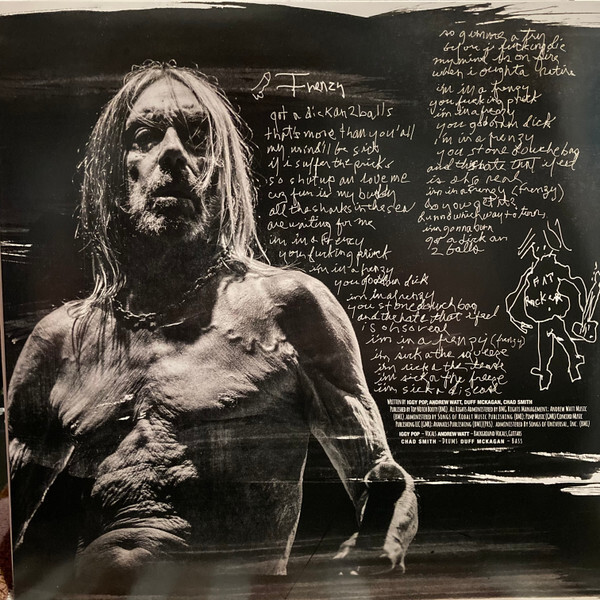 Frenzy
got a dick an 2 balls
that's more than you'all
my mind'll be sick
if i suffer the pricks
so shut up an love me
cuz fun is my buddy
all the sharks in the sea
are waiting for me
im in a frenzy
you fucking prick
im in a frenzy
you goddam dick
im in a frenzy
you stone douchebag
and the hate that i feel
is oh so real
im in a frenzy (frenzy)
im sick a the squeeze
im sick a the
im sick a the freeze
im sick a disease
so gimme a try
before i fucking die
my mind is on fire
when i oughta retire
im in a frenzy
you fucking prick
im in a frenzy
you goddam dick
i'm in a frenzy
you stone douche bag
and the hate that i feel
is oh so real
im in a frenzy (frenzy)
so you get it?
dunno which way to turn
im gonna burn
got a dick an
2 balls
FAT
FUCKER
WRITTEN BY IGGY POP, ANDREW WATT, DUFF MCKAGAN, CHAD SMITH
PUBLISHED BY TOP NOTCH BOOTY (BMI). ALL RIGHTS ADMINISTERED BY BMG RIGHTS MANAGEMENT. ANDREW WATT MUSIC
(BMI). ADMINISTERED BY SONGS OF KOBALT MUSIC PUBLISHING (BMI). PIMP MUSIC (GMR) CONCORD MUSIC
PUBLISHING LLC (GMR). PUBLISHING (BMI/PRS). ADMINISTERED BY SONGS OF UNIVERSAL, INC. (BMI)
IGGY POP – VOCALS ANDREW WATT – BACKGROUND VOCALS, GUITARS
CHAD SMITH – DRUMS DUFF MCKAGAN – BASS